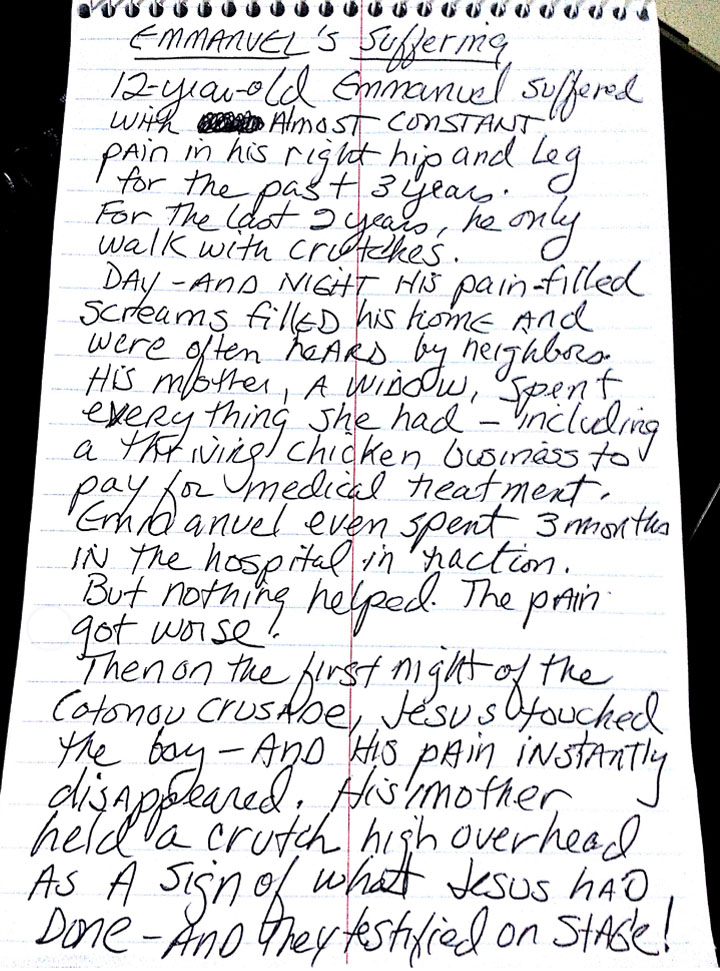 EMMANUEL's Suffering
12-year-old Emmanuel suffered
with AlmosT CONSTANT
pAin in his right hip and Leg
for the past 3 years.
For The last 2 years, he only
walk with crutches.
DAY-AND NIGHT His pain-filled
screams fillED his home And
were often heARD by neighbors.
His mother, A WIDOW, spent
everything she had – including
a thriving chicken business to
pay for medical treatment.
Emmanuel even spent 3 months
IN the hospital in traction.
But nothing helped. The pAin
got worse!
Then on the first night of the
Cotonou CRUSADE, Jesus touched
the boy – AND His pAin iNstANtly
disAppeared. His mother
held a crutch high overhead
As A Sign of what Jesus hAD
Done – AND They testified on STAGE!